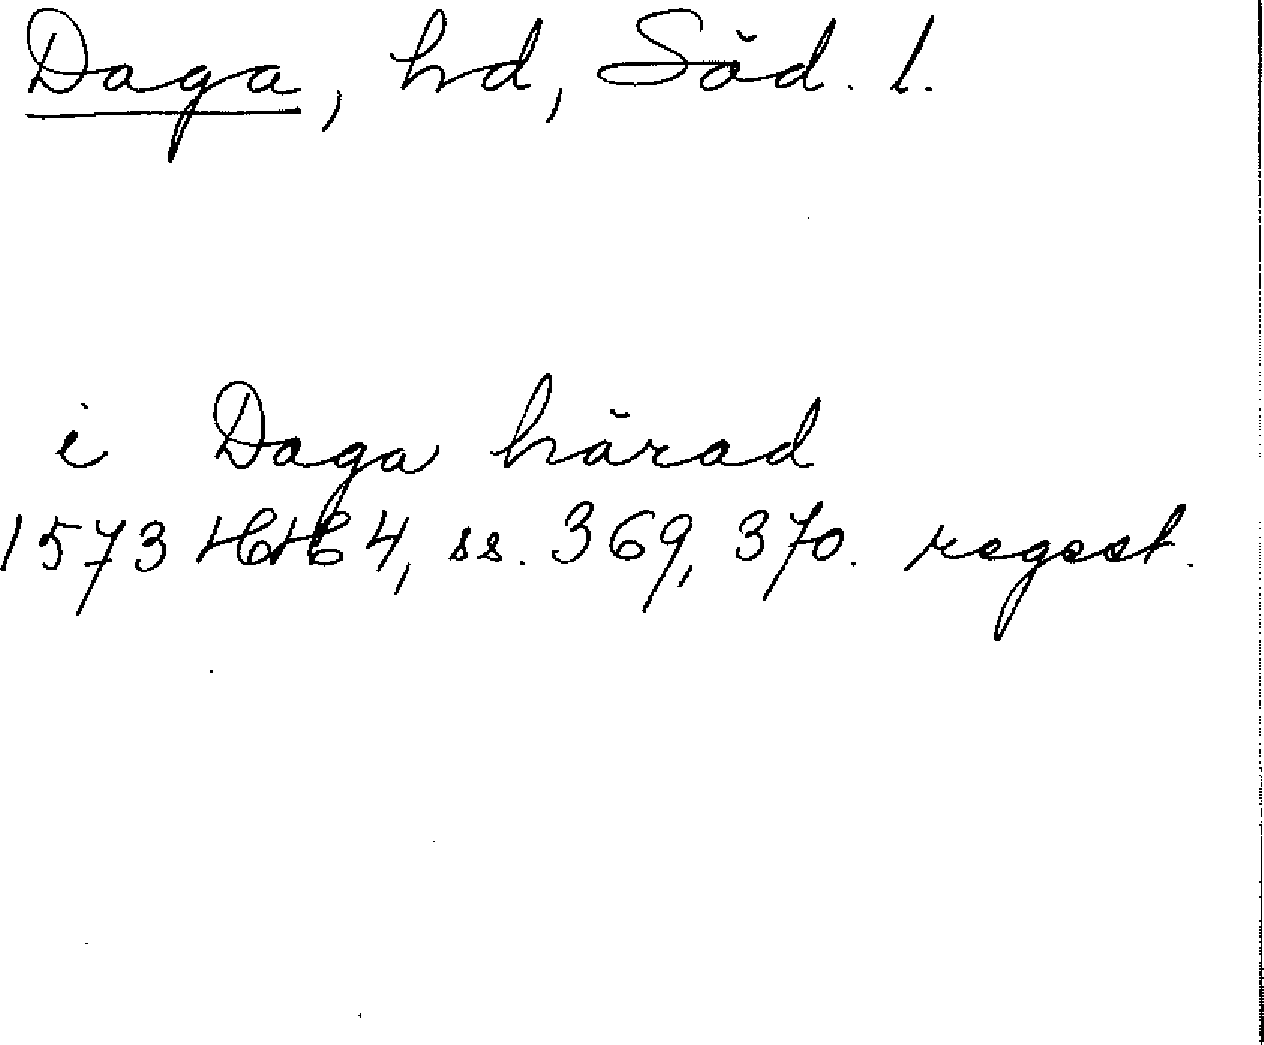 Daga, hd, Söd. l.
i Daga härad
1573 HH 4, ss. 369, 370. regest.